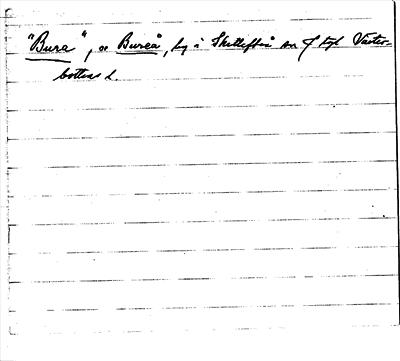 "Bura", se Bureå, by i Skellefteå sn o tgl Väster-
bottens l.